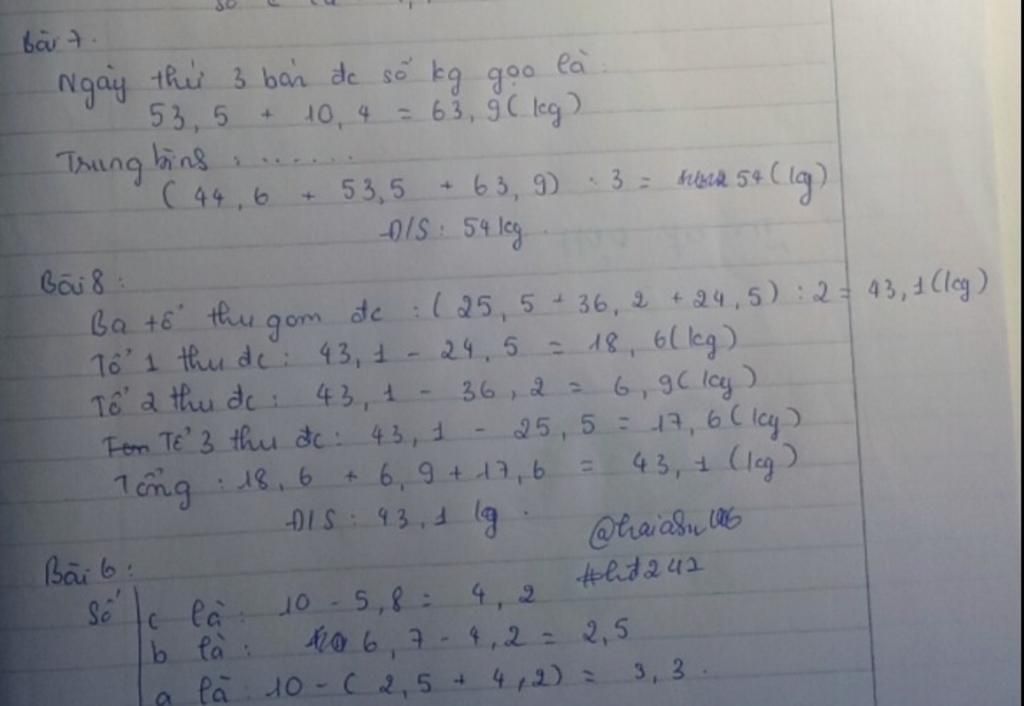 Bài 7.
Ngày thứ 3 bán đc số kg gạo là:
53,5 + 10,4 = 63,9(kg)
Trung bình : .......
(44,6 + 53,5 + 63,9) : 3 = 54(kg)
Đ/S: 54kg.
Bài 8:
Ba tổ thu gom đc : (25,5 + 36,2 + 24,5) : 2 = 43,1(kg)
Tổ 1 thu đc: 43,1 - 24,5 = 18,6(kg)
Tổ 2 thu đc: 43,1 - 36,2 = 6,9(kg)
Tổ 3 thu đc: 43,1 - 25,5 = 17,6(kg)
Tổng : 18,6 + 6,9 + 17,6 = 43,1(kg)
Đ/S: 43,1 kg.
Bài 6:
Số c là: 10 - 5,8 = 4,2
b là: 6,7 - 4,2 = 2,5
a là: 10 - (2,5 + 4,2) = 3,3.